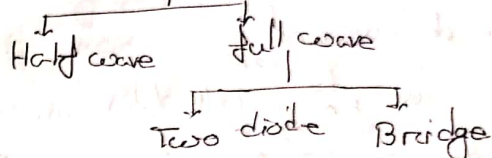 Half wave
full wave
Two diode
Bridge